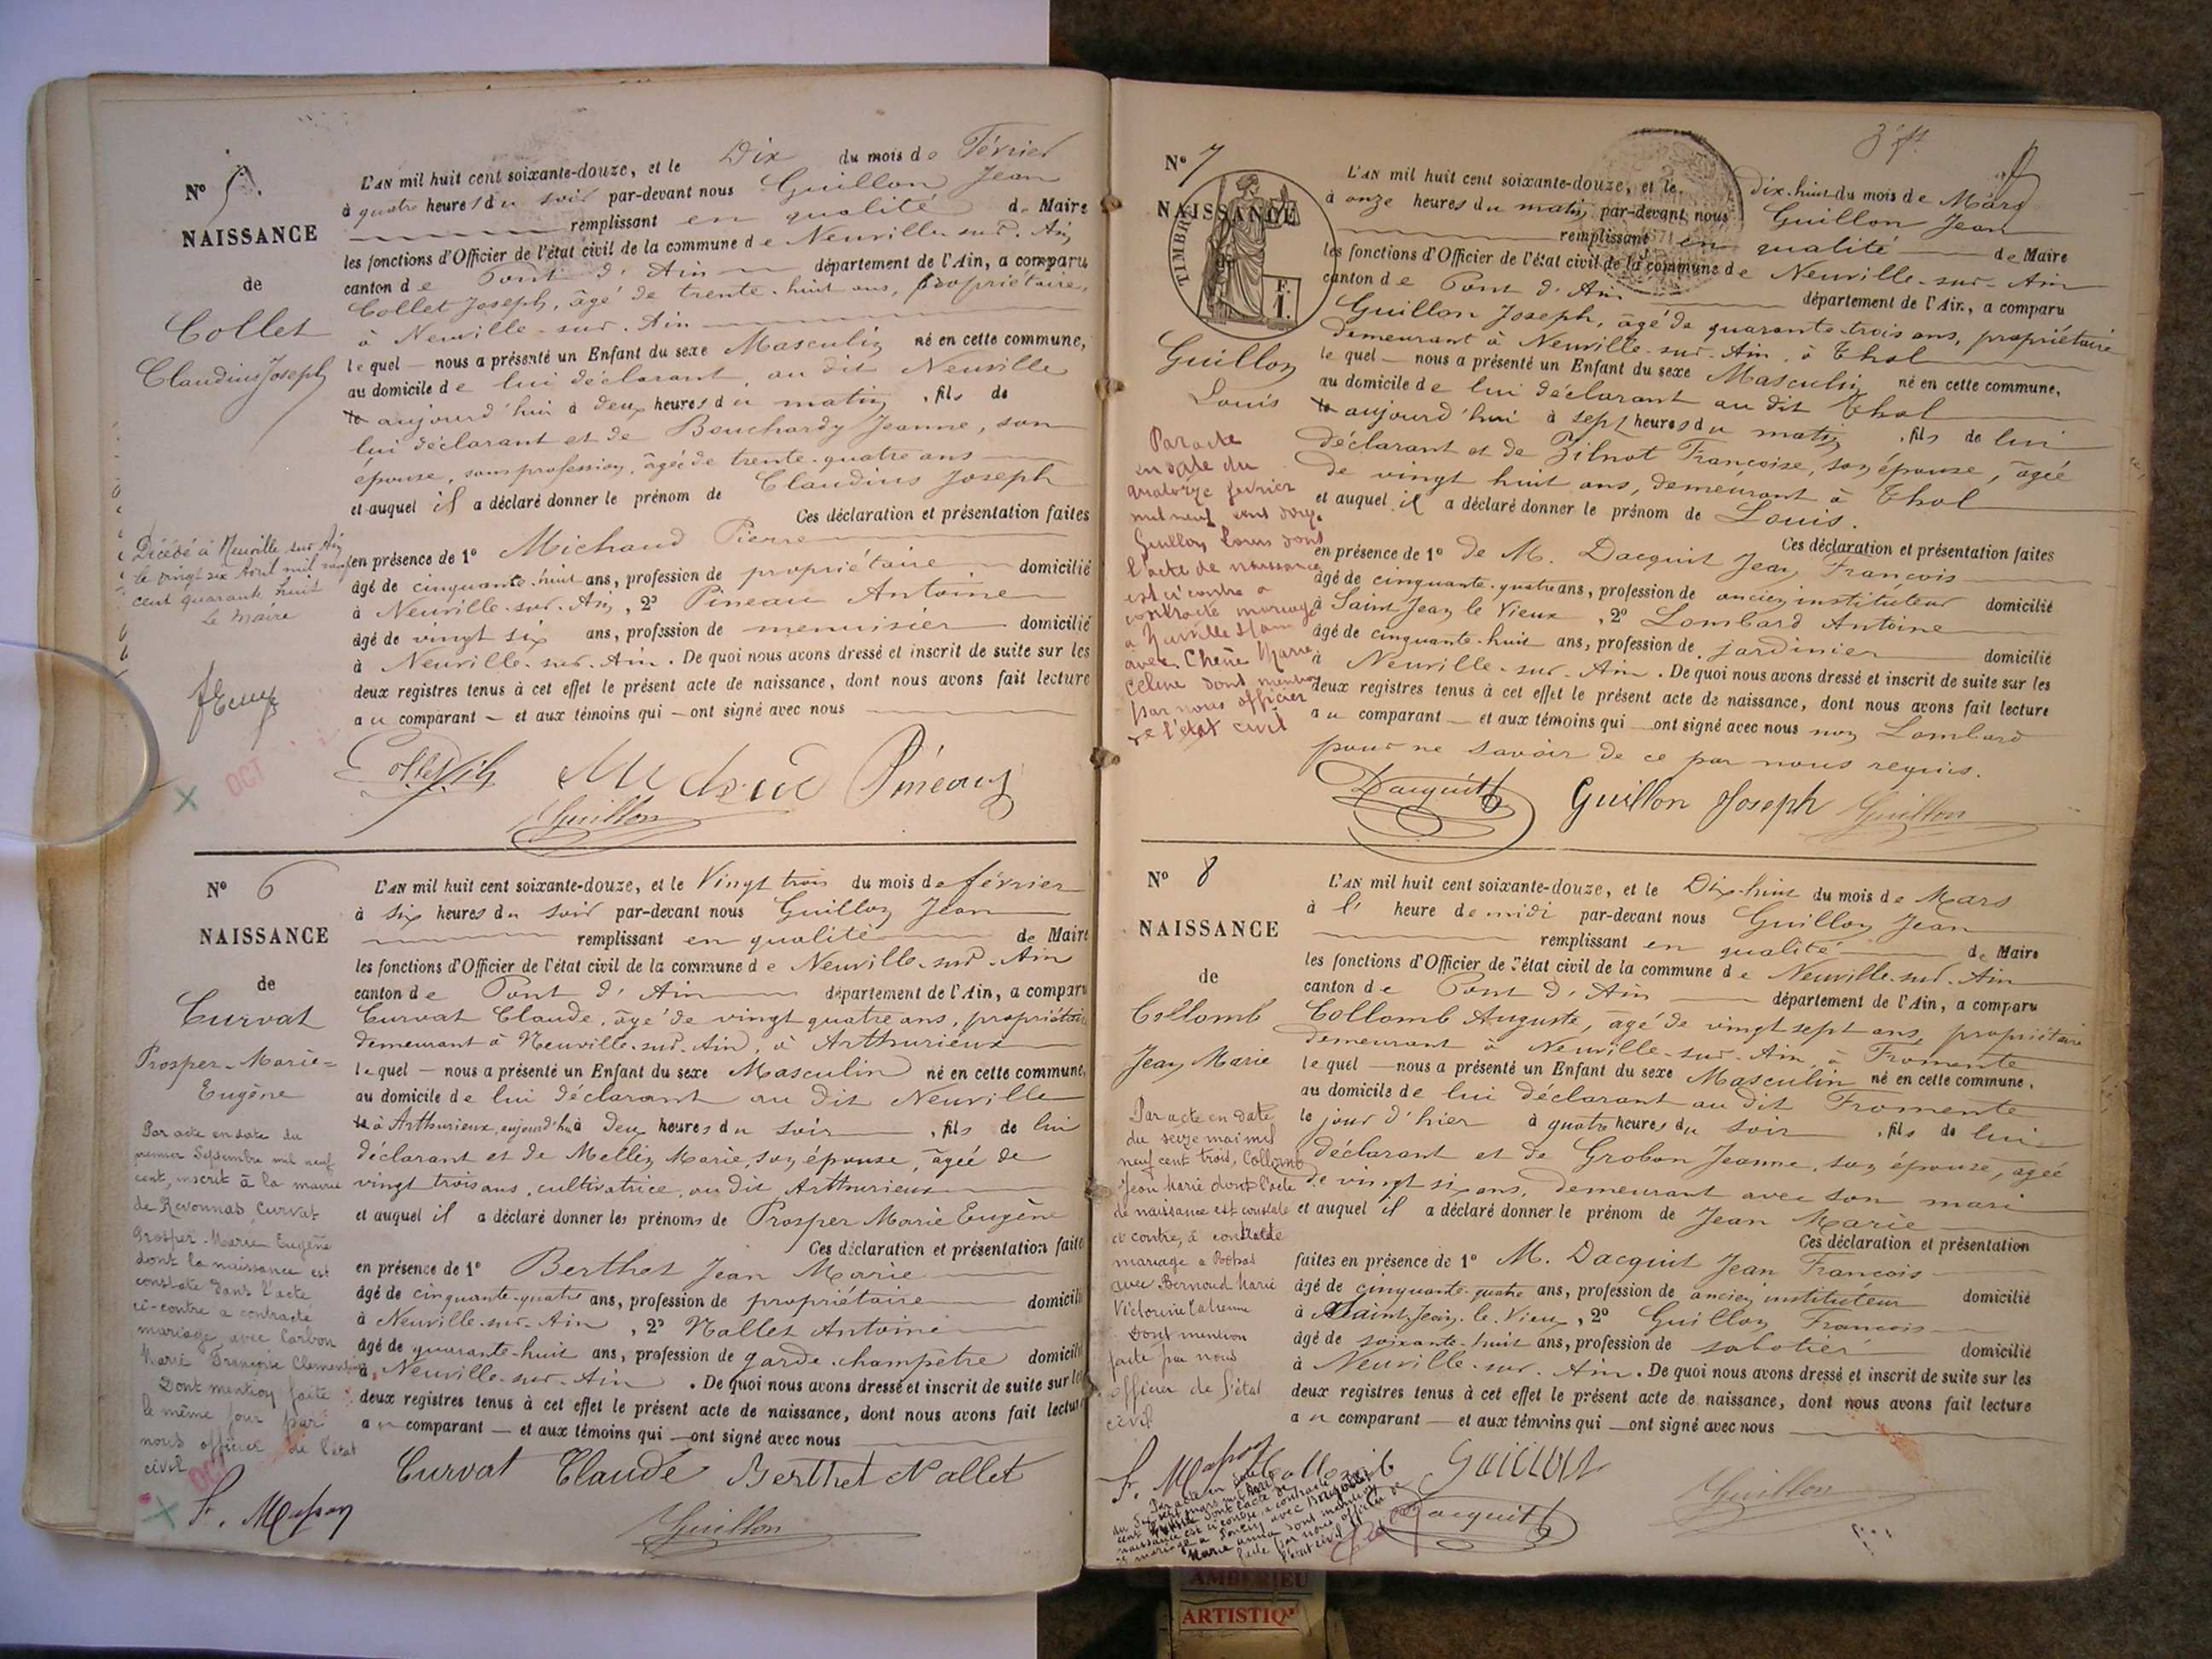 N° 5.
NAISSANCE
de
Collet
Claudius Joseph
Décédé à Neuville sur Ain
le vingt six Avril mil neuf
cent quarante huit
Le Maire
L'AN mil huit cent soixante-douze, et le Dix du mois de Février
à quatre heures du soir par-devant nous Guillon Jean
remplissant en qualité de Maire
les fonctions d'Officier de l'état civil de la commune de Neuville-sur-Ain
canton de Pont d'Ain département de l'Ain, a comparu
Collet Joseph, âgé de trente-huit ans, propriétaire,
à Neuville-sur-Ain
lequel nous a présenté un Enfant du sexe Masculin né en cette commune,
au domicile de lui déclarant, au dit Neuville
le aujourd'hui à deux heures du matin, fils de
lui déclarant et de Bouchardy Jeanne, son
épouse, sans profession, âgée de trente-quatre ans
et auquel il a déclaré donner le prénom de Claudius Joseph
Ces déclaration et présentation faites
en présence de 1° Michaud Pierre
âgé de cinquante-huit ans, profession de propriétaire domicilié
à Neuville-sur-Ain, 2° Pineau Antoine
âgé de vingt six ans, profession de menuisier domicilié
à Neuville-sur-Ain. De quoi nous avons dressé et inscrit de suite sur les
deux registres tenus à cet effet le présent acte de naissance, dont nous avons fait lecture
au comparant et aux témoins qui ont signé avec nous
Collet Michaud Pineau
Guillon
OCT
N° 6
NAISSANCE
de
Curvat
Prosper-Marie=
Eugène
Par acte en date du
premier Septembre mil neuf
cent, inscrit à la mairie
de Revonnas, Curvat
Prosper-Marie Eugène
dont la naissance est
constatée dans l'acte
ci-contre a contracté
mariage avec Carbon
Marie Françoise Clementine
Dont mention faite
le même jour par
nous officier de l'état
civil
L'AN mil huit cent soixante-douze, et le Vingt trois du mois de février
à six heures du soir par-devant nous Guillon Jean
remplissant en qualité de Maire
les fonctions d'Officier de l'état civil de la commune de Neuville-sur-Ain
canton de Pont d'Ain département de l'Ain, a comparu
Curvat Claude, âgé de vingt quatre ans, propriétaire
demeurant à Neuville-sur-Ain, à Arthurieux
lequel nous a présenté un Enfant du sexe Masculin né en cette commune,
au domicile de lui déclarant au dit Neuville
le à Arthurieux, aujourd'hui à deux heures du soir, fils de lui
déclarant et de Mellin Marie, son épouse, âgée de
vingt trois ans, cultivatrice, au dit Arthurieux
et auquel il a déclaré donner les prénoms de Prosper Marie Eugène
Ces déclaration et présentation faites
en présence de 1° Berthet Jean Marie
âgé de cinquante-quatre ans, profession de propriétaire domicilié
à Neuville-sur-Ain, 2° Nallet Antoine
âgé de quarante-huit ans, profession de garde-champêtre domicilié
à Neuville-sur-Ain. De quoi nous avons dressé et inscrit de suite sur les
deux registres tenus à cet effet le présent acte de naissance, dont nous avons fait lecture
au comparant et aux témoins qui ont signé avec nous
Curvat Claude Berthet Nallet
Guillon
N° 7
NAISSANCE
TIMBRE
F.
1.
Guillon
Louis
Par acte
en date du
quatorze fevrier
mil neuf cent douze
Guillon Louis dont
l'acte de naissance
est ci contre a
contracté mariage
à Neuville s/ Ain
avec Chene Marie
Celine dont mention
par nous officier
de l'état civil
L'AN mil huit cent soixante-douze, et le dix-huit du mois de Mars
à onze heures du matin par-devant nous Guillon Jean
remplissant en qualité de Maire
les fonctions d'Officier de l'état civil de la commune de Neuville-sur-Ain
canton de Pont d'Ain département de l'Ain, a comparu
Guillon Joseph, âgé de quarante-trois ans, propriétaire
demeurant à Neuville-sur-Ain, à Thol
lequel nous a présenté un Enfant du sexe Masculin né en cette commune,
au domicile de lui déclarant au dit Thol
le aujourd'hui à sept heures du matin, fils de lui
déclarant et de Françoise, son épouse, âgée
de vingt huit ans, demeurant à Thol
et auquel il a déclaré donner le prénom de Louis.
Ces déclaration et présentation faites
en présence de 1° de M. Dacquit Jean François
âgé de cinquante-quatre ans, profession de ancien instituteur domicilié
à Saint Jean le Vieux, 2° Lombard Antoine
âgé de cinquante-huit ans, profession de jardinier domicilié
à Neuville-sur-Ain. De quoi nous avons dressé et inscrit de suite sur les
deux registres tenus à cet effet le présent acte de naissance, dont nous avons fait lecture
au comparant et aux témoins qui ont signé avec nous non Lombard
pour ne savoir de ce par nous requis.
Dacquit Guillon Joseph Guillon
N° 8
NAISSANCE
de
Collomb
Jean Marie
Par acte en date
du seize mai mil
neuf cent trois, Collomb
Jean Marie dont l'acte
de naissance est constaté
ci contre, a contracté
mariage a
avec Bernoud Marie
Victorine
Dont mention
faite par nous
officier de l'état
civil
L'AN mil huit cent soixante-douze, et le Dix-huit du mois de Mars
à l' heure de midi par-devant nous Guillon Jean
remplissant en qualité de Maire
les fonctions d'Officier de l'état civil de la commune de Neuville-sur-Ain
canton de Pont d'Ain département de l'Ain, a comparu
Collomb Auguste, âgé de vingt sept ans, propriétaire
demeurant à Neuville-sur-Ain, à Fromente
lequel nous a présenté un Enfant du sexe Masculin né en cette commune,
au domicile de lui déclarant au dit Fromente
le jour d'hier à quatre heures du soir, fils de lui
déclarant et de Grobon Jeanne, son épouse, âgée
de vingt six ans, demeurant avec son mari
et auquel il a déclaré donner le prénom de Jean Marie
Ces déclaration et présentation
faites en présence de 1° M. Dacquit Jean François
âgé de cinquante-quatre ans, profession de ancien instituteur domicilié
à Saint-Jean-le-Vieux, 2° Guillon François
âgé de soixante-huit ans, profession de sabotier domicilié
à Neuville-sur-Ain. De quoi nous avons dressé et inscrit de suite sur les
deux registres tenus à cet effet le présent acte de naissance, dont nous avons fait lecture
au comparant et aux témoins qui ont signé avec nous
Collomb Guillon
Dacquit Guillon
AMBERIEU
ARTISTIQ